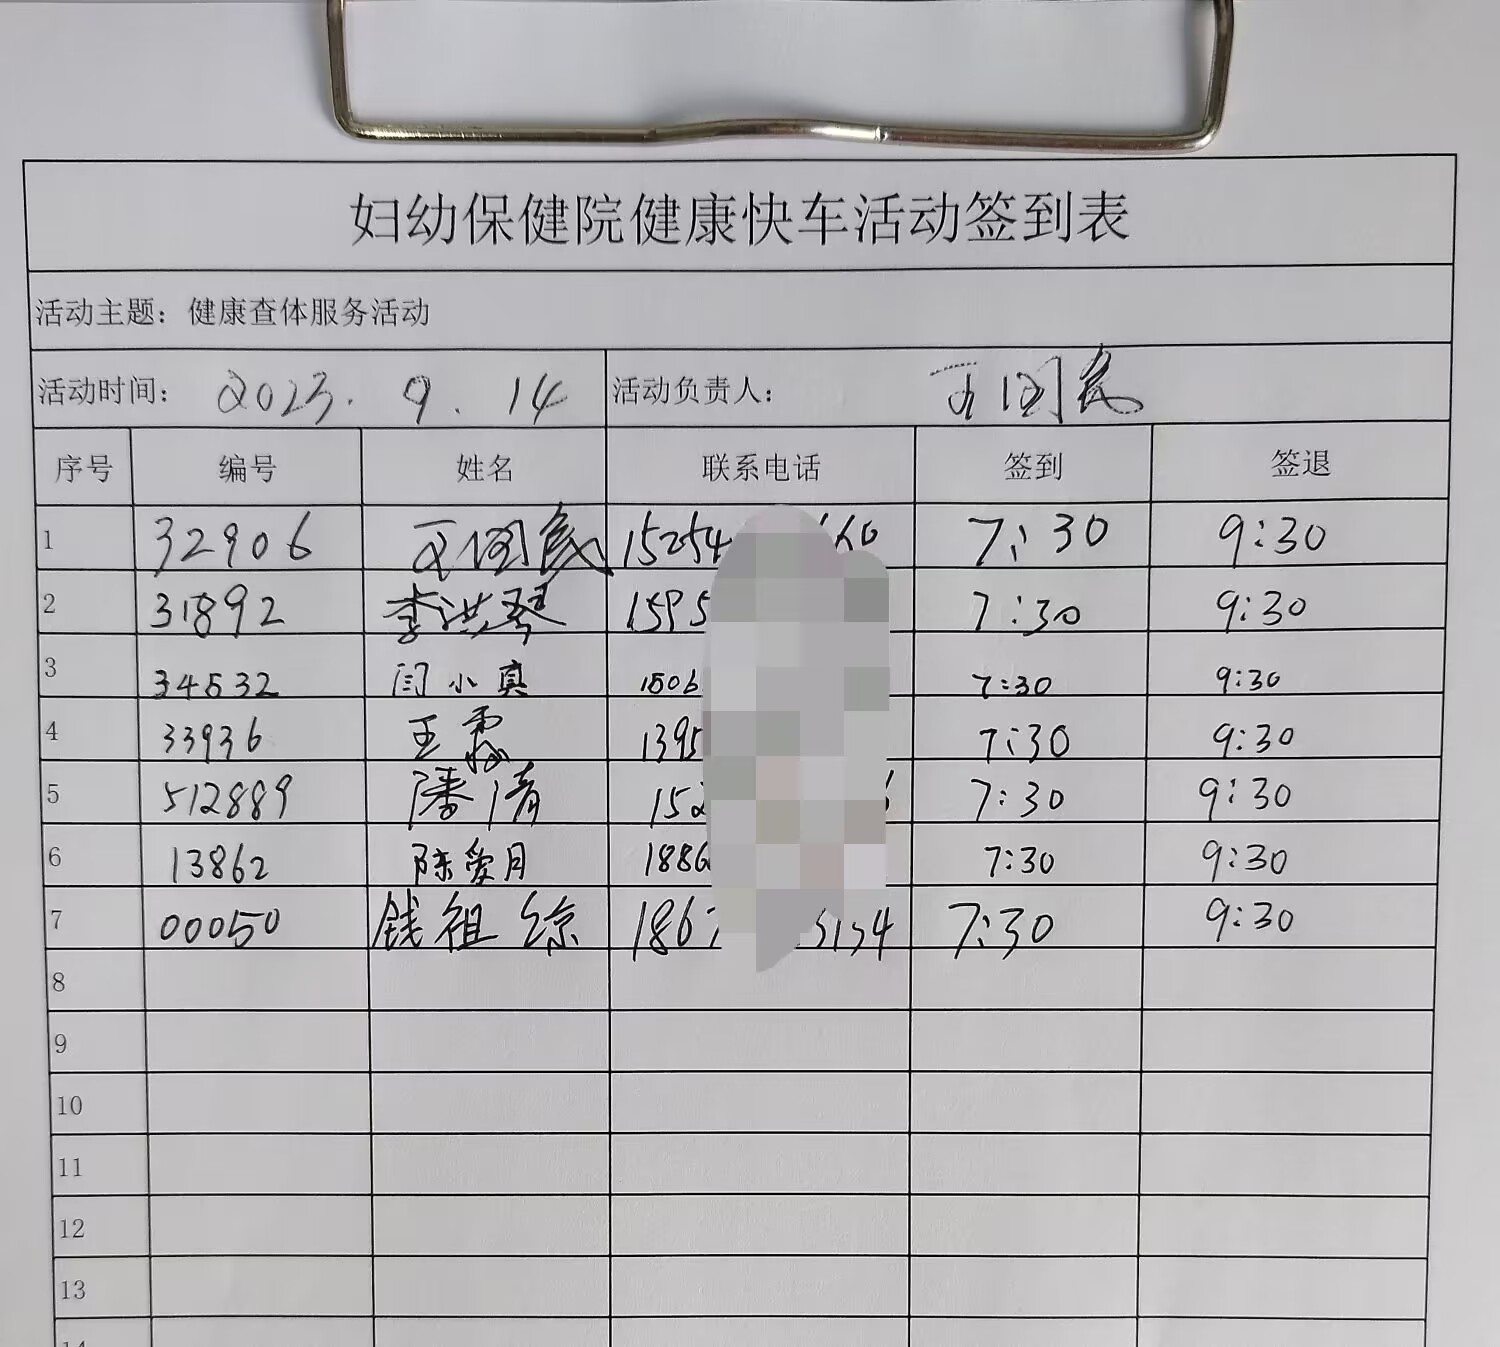 妇幼保健院健康快车活动签到表
活动主题：健康查体服务活动
活动时间： 2023. 9. 14 活动负责人： 王国民
序号 编号 姓名 联系电话 签到 签退
1 32906 王国民 15254 660 7:30 9:30
2 31892 李洪琴 1595 7:30 9:30
3 34532 闫小真 1506 7:30 9:30
4 33936 王霞 1395 7:30 9:30
5 512889 潘倩 152 7:30 9:30
6 13862 陈爱月 1886 7:30 9:30
7 00050 钱祖琼 1867 5154 7:30 9:30
8
9
10
11
12
13
14